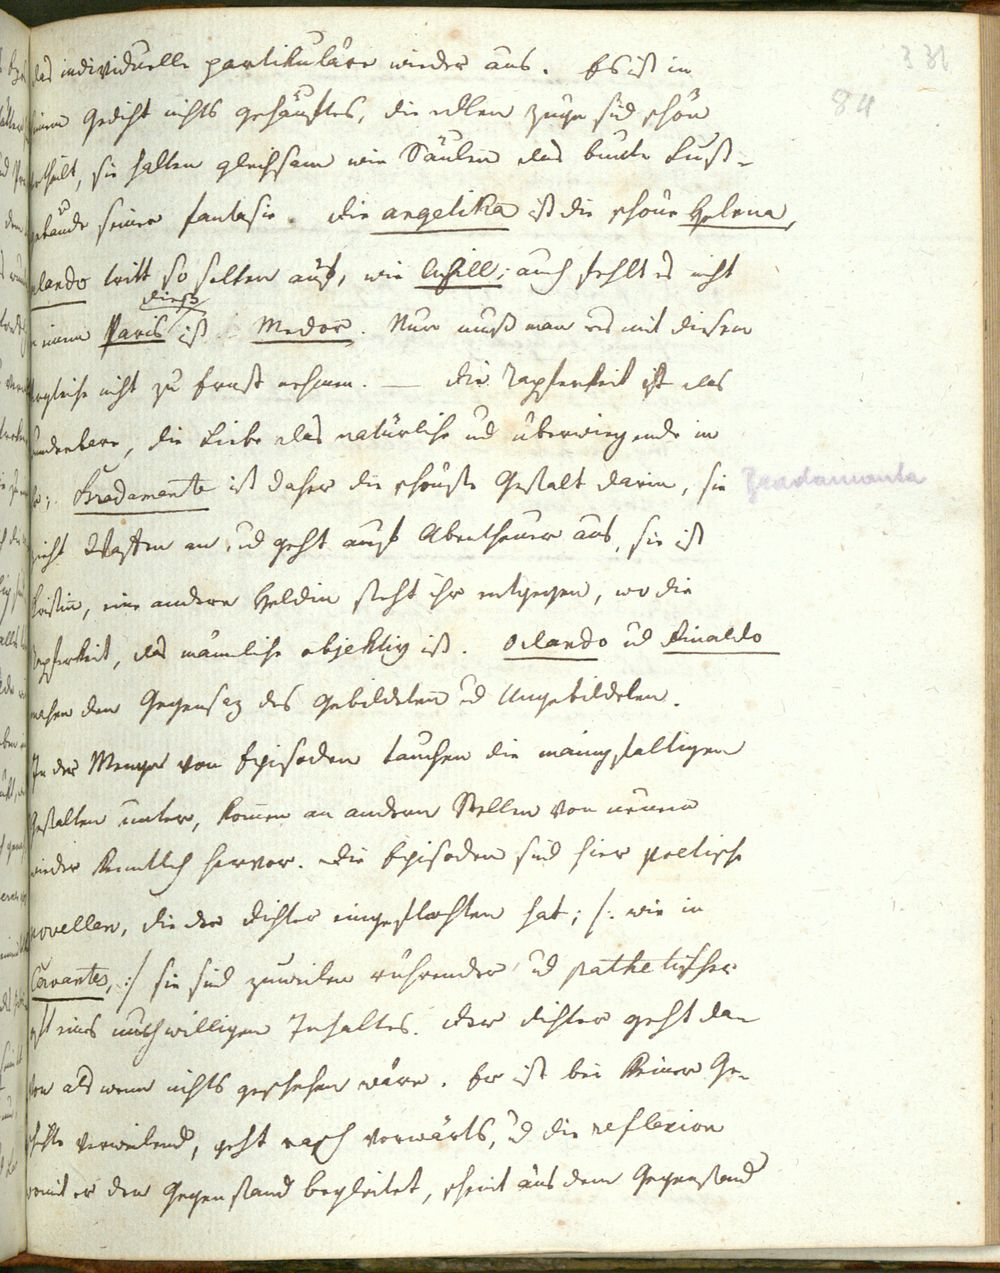 331
84
das individuelle partikuläre wieder aus. Es ist in
seinem Gedicht nichts gehäuftes, die edlen Züge sind schön
vertheilt, sie halten gleichsam wie Säulen das bunte Luft-
gebäude seiner Fantasie. Die Angelika ist die schöne Helena,
Orlando tritt so selten auf, wie Achill; auch fehlt es nicht
an einem Paris dieß ist Medor. Nur muß man es mit diesem
Vergleiche nicht zu Ernst nehmen. — Die Tapferkeit ist das
wunderbare, die Liebe das natürliche und überwiegende in
Bradamante ist daher die schönste Gestalt darin, sie
Bradamante
zieht Waffen an, und geht aufs Abentheuer aus, sie ist
Christin, eine andere Heldin steht ihr entgegen, wo die
Tapferkeit, das männliche objektiv ist. Orlando und Rinaldo
machen den Gegensaz des Gebildeten und Ungebildeten.
In der Menge von Episoden tauchen die mannigfaltigen
Gestalten unter, kommen an andern Stellen von neuem
wieder kenntlich hervor. Die Episoden sind hier poetische
Novellen, die der Dichter eingeflochten hat; /: wie in
Cervantes, :/ sie sind zuweilen rührender und pathetischer
oft eines muthwilligen Inhaltes. Der Dichter geht da-
von als wenn nichts geschehen wäre. Er ist bei keiner Ge-
schichte verweilend, geht rasch vorwärts, und die Reflexion
womit er den Gegenstand begleitet, scheint aus dem Gegenstand